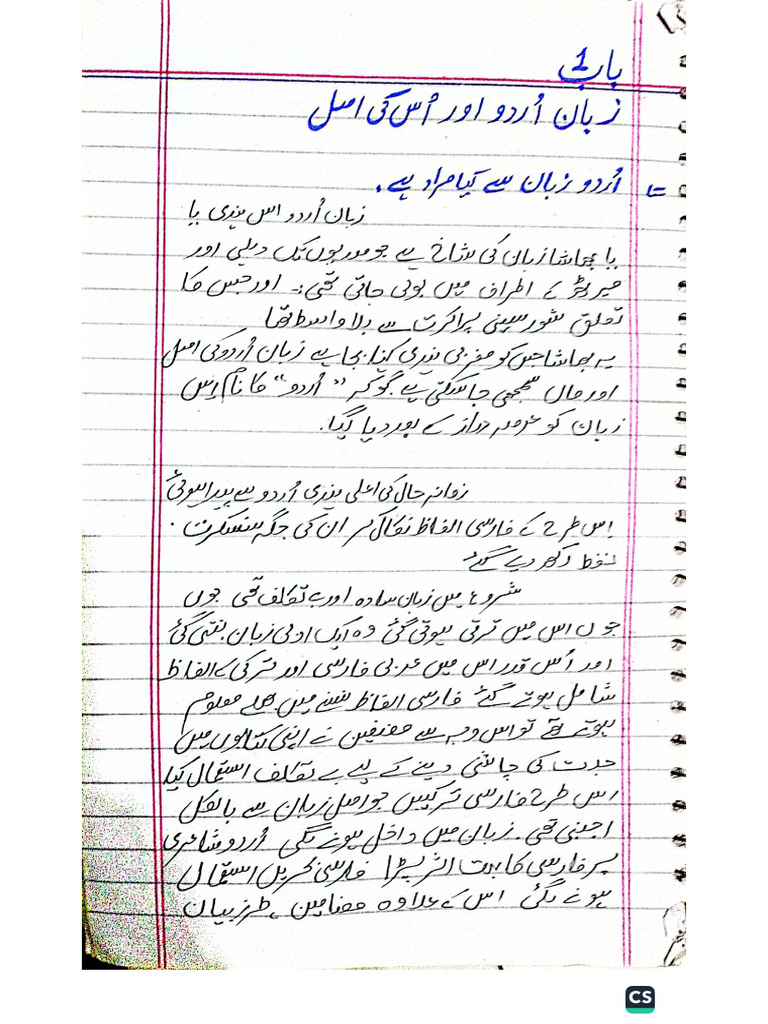 باب 1
زبان اُردو اور اُس کی اصل
اُردو زبان سے کیا مراد ہے۔
زبان اُردو اس ہندی یا
یا بھاشا زبان کی شاخ ہے جو صدیوں تک دہلی اور
میرٹھ کے اطراف میں بولی جاتی تھی۔ اور جس کا
تعلق شورسینی پراکرت سے بلا واسطہ تھا
یہ بھاشا جس کو مغربی ہندی کہنا بجا ہے زبان اُردو کی اصل
اور ماں سمجھی جا سکتی ہے گو کہ "اُردو" کا نام اِس
زبان کو عرصہ دراز کے بعد دیا گیا۔
زمانہ حال کی اعلی ہندی اُردو سے پیدا ہوئی
اِس طرح کے فارسی الفاظ نکال کر ان کی جگہ سنسکرت
لفظ رکھ دیے گئے
شروع میں زبان سادہ اور بے تکلف تھی جوں
جوں اس میں ترقی ہوتی گئی وہ ایک ادبی زبان بنتی گئی
اور اُس قدر اس میں عربی فارسی اور ترکی کے الفاظ
شامل ہوتے گئے فارسی الفاظ سننے میں بھلے معلوم
ہوتے تھے تو اس وجہ سے مصنفین نے اپنی کتابوں میں
جدت کی چاشنی دینے کے لیے بے تکلف استمال کیا
اس طرح فارسی ترکیبیں جو اصل زبان سے بالکل
اجنبی تھی۔ زبان میں داخل ہونے لگی اُردو شاعری
پر فارسی کا بہت اثر پڑا فارسی بحریں استمال
ہونے لگی اس کے علاوہ مضامین، طرز بیان
CS